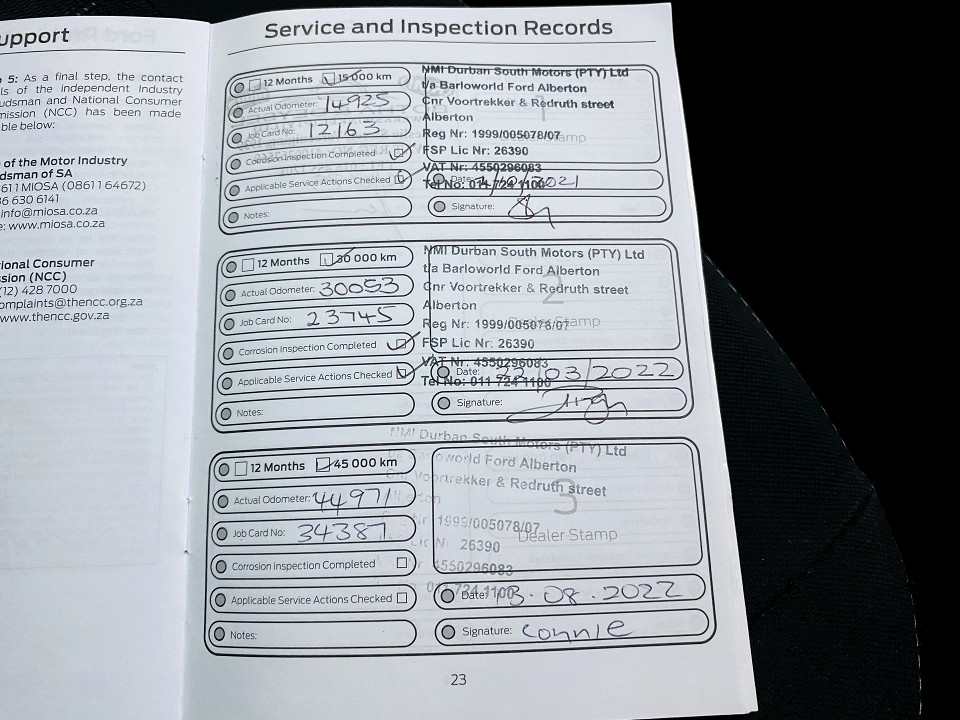 upport
5: As a final step, the contact
ls of the Independent Industry
udsman and National Consumer
mission (NCC) has been made
ble below:
of the Motor Industry
dsman of SA
611 MIOSA (08611 64672)
86 630 6141
info@miosa.co.za
e: www.miosa.co.za
ional Consumer
ssion (NCC)
(12) 428 7000
omplaints@thencc.org.za
www.thencc.gov.za
Service and Inspection Records
12 Months 15 000 km
Actual Odometer: 14925
Job Card No: 12163
Corrosion Inspection Completed
Applicable Service Actions Checked
Notes:
NMI Durban South Motors (PTY) Ltd
t/a Barloworld Ford Alberton
Cnr Voortrekker & Redruth street
Alberton
Reg Nr: 1999/005078/07
FSP Lic Nr: 26390
VAT Nr: 4550296083
Tel No: 011 724 1100
1
Stamp
Date: 2021
Signature:
12 Months 30 000 km
Actual Odometer: 30053
Job Card No: 23745
Corrosion Inspection Completed
Applicable Service Actions Checked
Notes:
NMI Durban South Motors (PTY) Ltd
t/a Barloworld Ford Alberton
Cnr Voortrekker & Redruth street
Alberton
Reg Nr: 1999/005078/07
FSP Lic Nr: 26390
VAT Nr. 4550296083
Tel No: 011 724 1100
2
Dealer Stamp
Date: 22/03/2022
Signature:
12 Months 45 000 km
Actual Odometer: 44971
Job Card No: 34387
Corrosion Inspection Completed
Applicable Service Actions Checked
Notes:
NMI Durban South Motors (PTY) Ltd
oworld Ford Alberton
Voortrekker & Redruth street
rton
1999/005078/07
Lic N 26390
4550296083
724 1100
3
Dealer Stamp
Date: 13.08.2022
Signature: connie
23